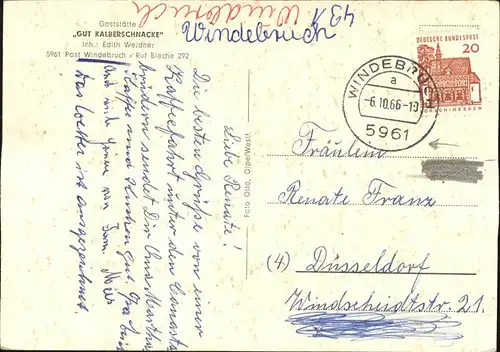 Gaststätte
"GUT KALBERSCHNACKE"
Inh.: Edith Weidner
5961 Post Windebruch - Ruf Bleche 292
Windebruch
43 X
Windebruch
DEUTSCHE BUNDESPOST
20
WINDEBRUCH
a
-6.10.66-10
5961
Liebe Renate!
Die besten Grüße von einer
Kaffeefahrt unter den Canasta
brüdern sendet Dir Oma Martha
Kaffee und Kuchen gut.
Das Wetter ist ausgezeichnet.
Foto Otto, Olpe/Westf.
Fräulein
Renate Franz
(4) Düsseldorf
Windscheidtstr. 21.